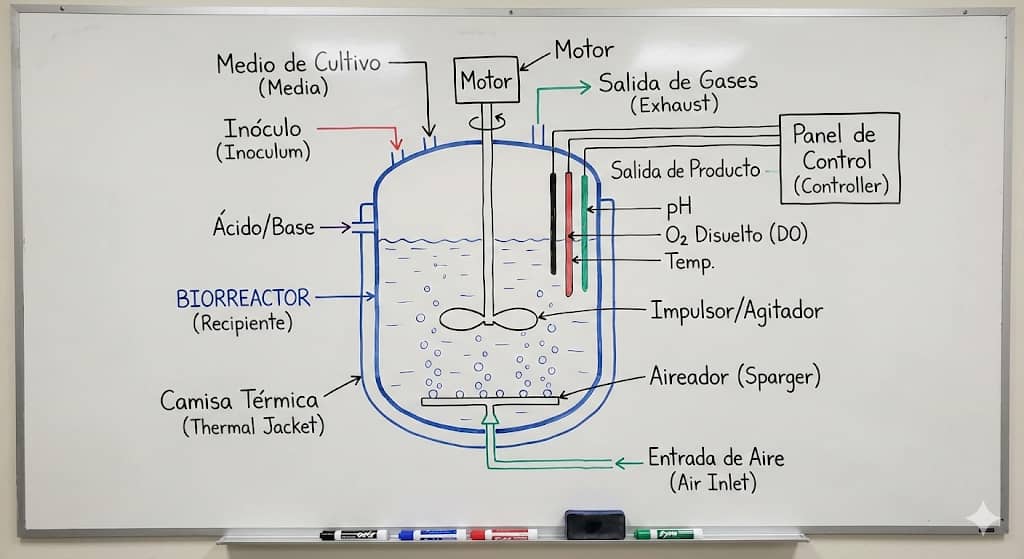 Medio de Cultivo
(Media)
Motor
Motor
Salida de Gases
(Exhaust)
Inóculo
(Inoculum)
Panel de
Control
(Controller)
Salida de Producto
Ácido/Base
pH
O₂ Disuelto (DO)
Temp.
BIORREACTOR
(Recipiente)
Impulsor/Agitador
Camisa Térmica
(Thermal Jacket)
Aireador (Sparger)
Entrada de Aire
(Air Inlet)